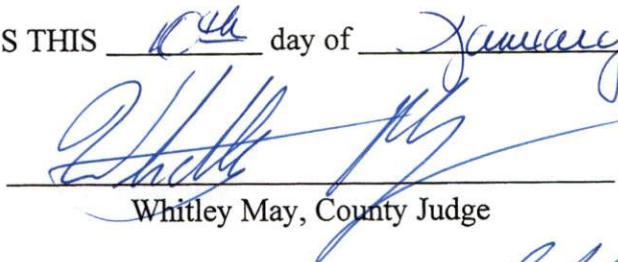 S THIS 10th day of January
Whitley May, County Judge